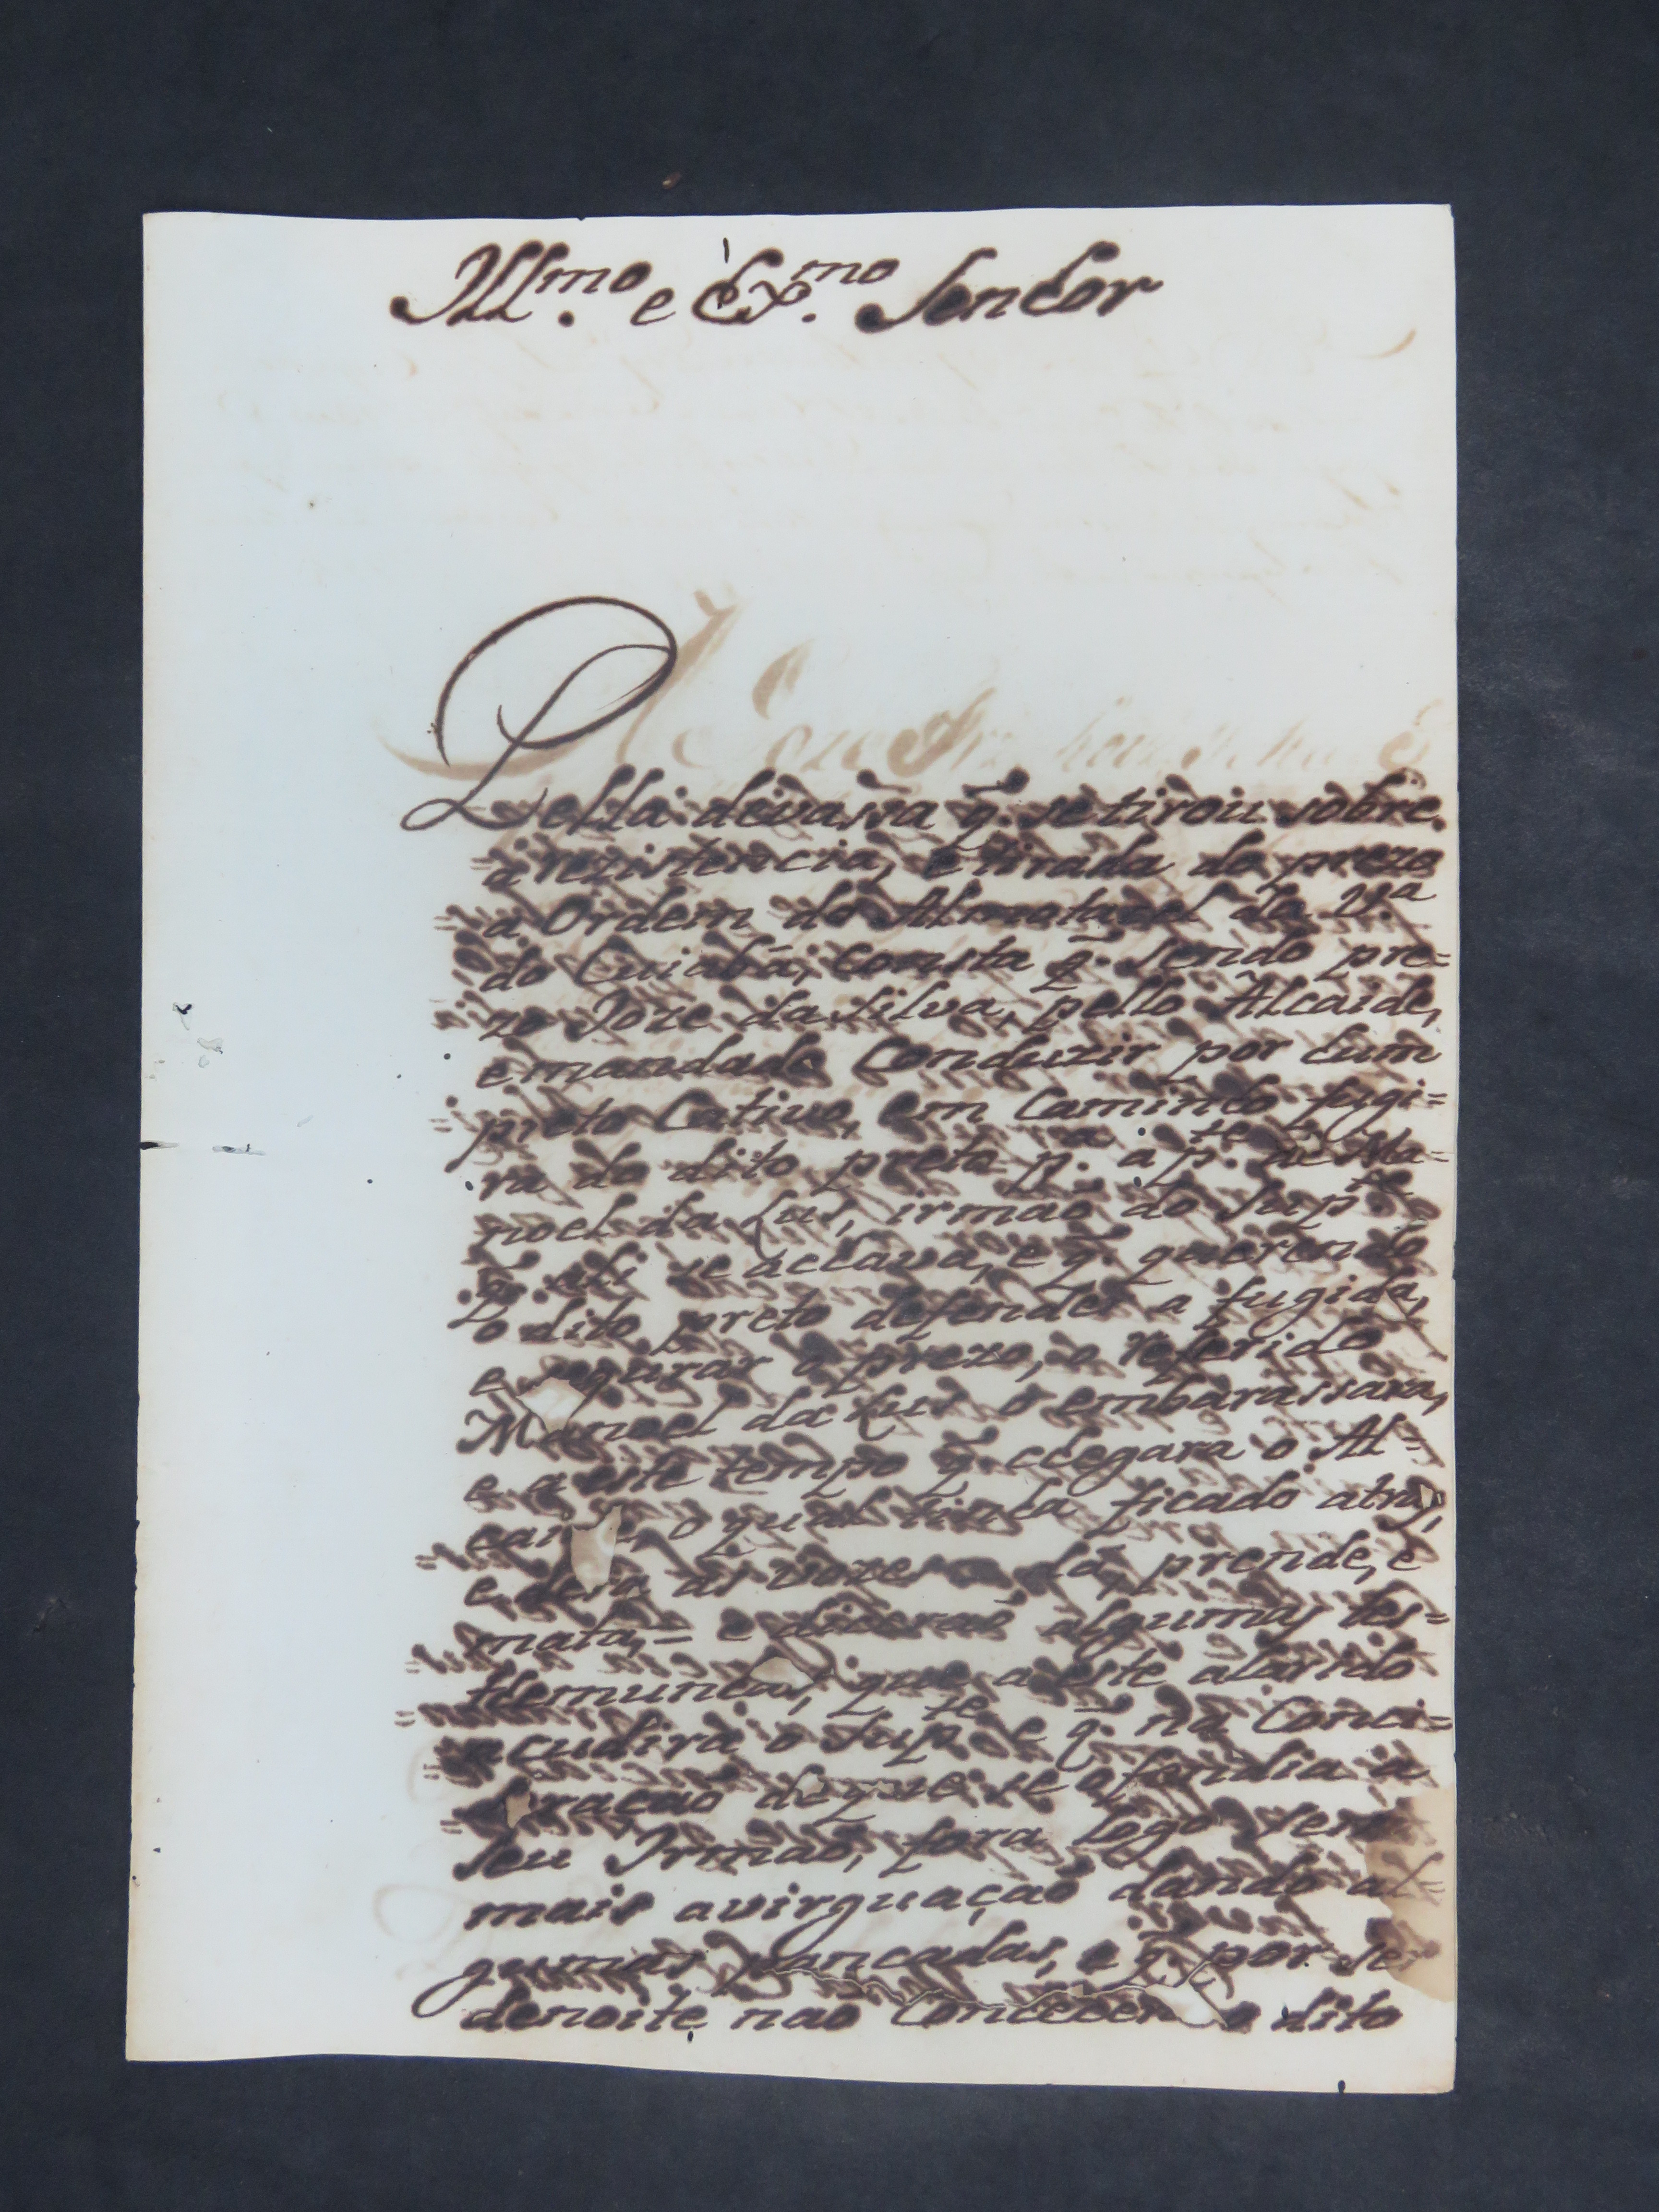 Ill.mo e Ex.mo Senhor
Pella devassa q̃. se tirou sobre
a rezistencia, e tirada do prezo
a Ordem do Almotacel da V.a
do Cuiabá, consta q̃. sendo pre=
zo Joze da Silva, pello Alcaide,
e mandado Conduzir por hum
preto Cativo, em Caminho fugi=
ra do dito preto p.a a p.te de Ma=
noel da Lus, irmaõ do Sup.te
q̃. ahi se achava, e q̃. querendo
o dito preto defender a fugida,
e segurar o prezo, o referido
Manoel da Lus o embarassara,
e a este tempo q̃. chegara o Al=
caide, o qual tinha ficado atrás,
e dera as vozes prende, e
mata,= e diceraõ algumas tes=
themunhas, que a este alarido
acudira o Sup.te e q̃. na Conci=
deraçaõ de que se ofendia a
seu Irmaõ, fora logo sem
mais avirguaçaõ dando al=
gumas pancadas, e q̃. por ser
denoite naõ Conhecera o dito